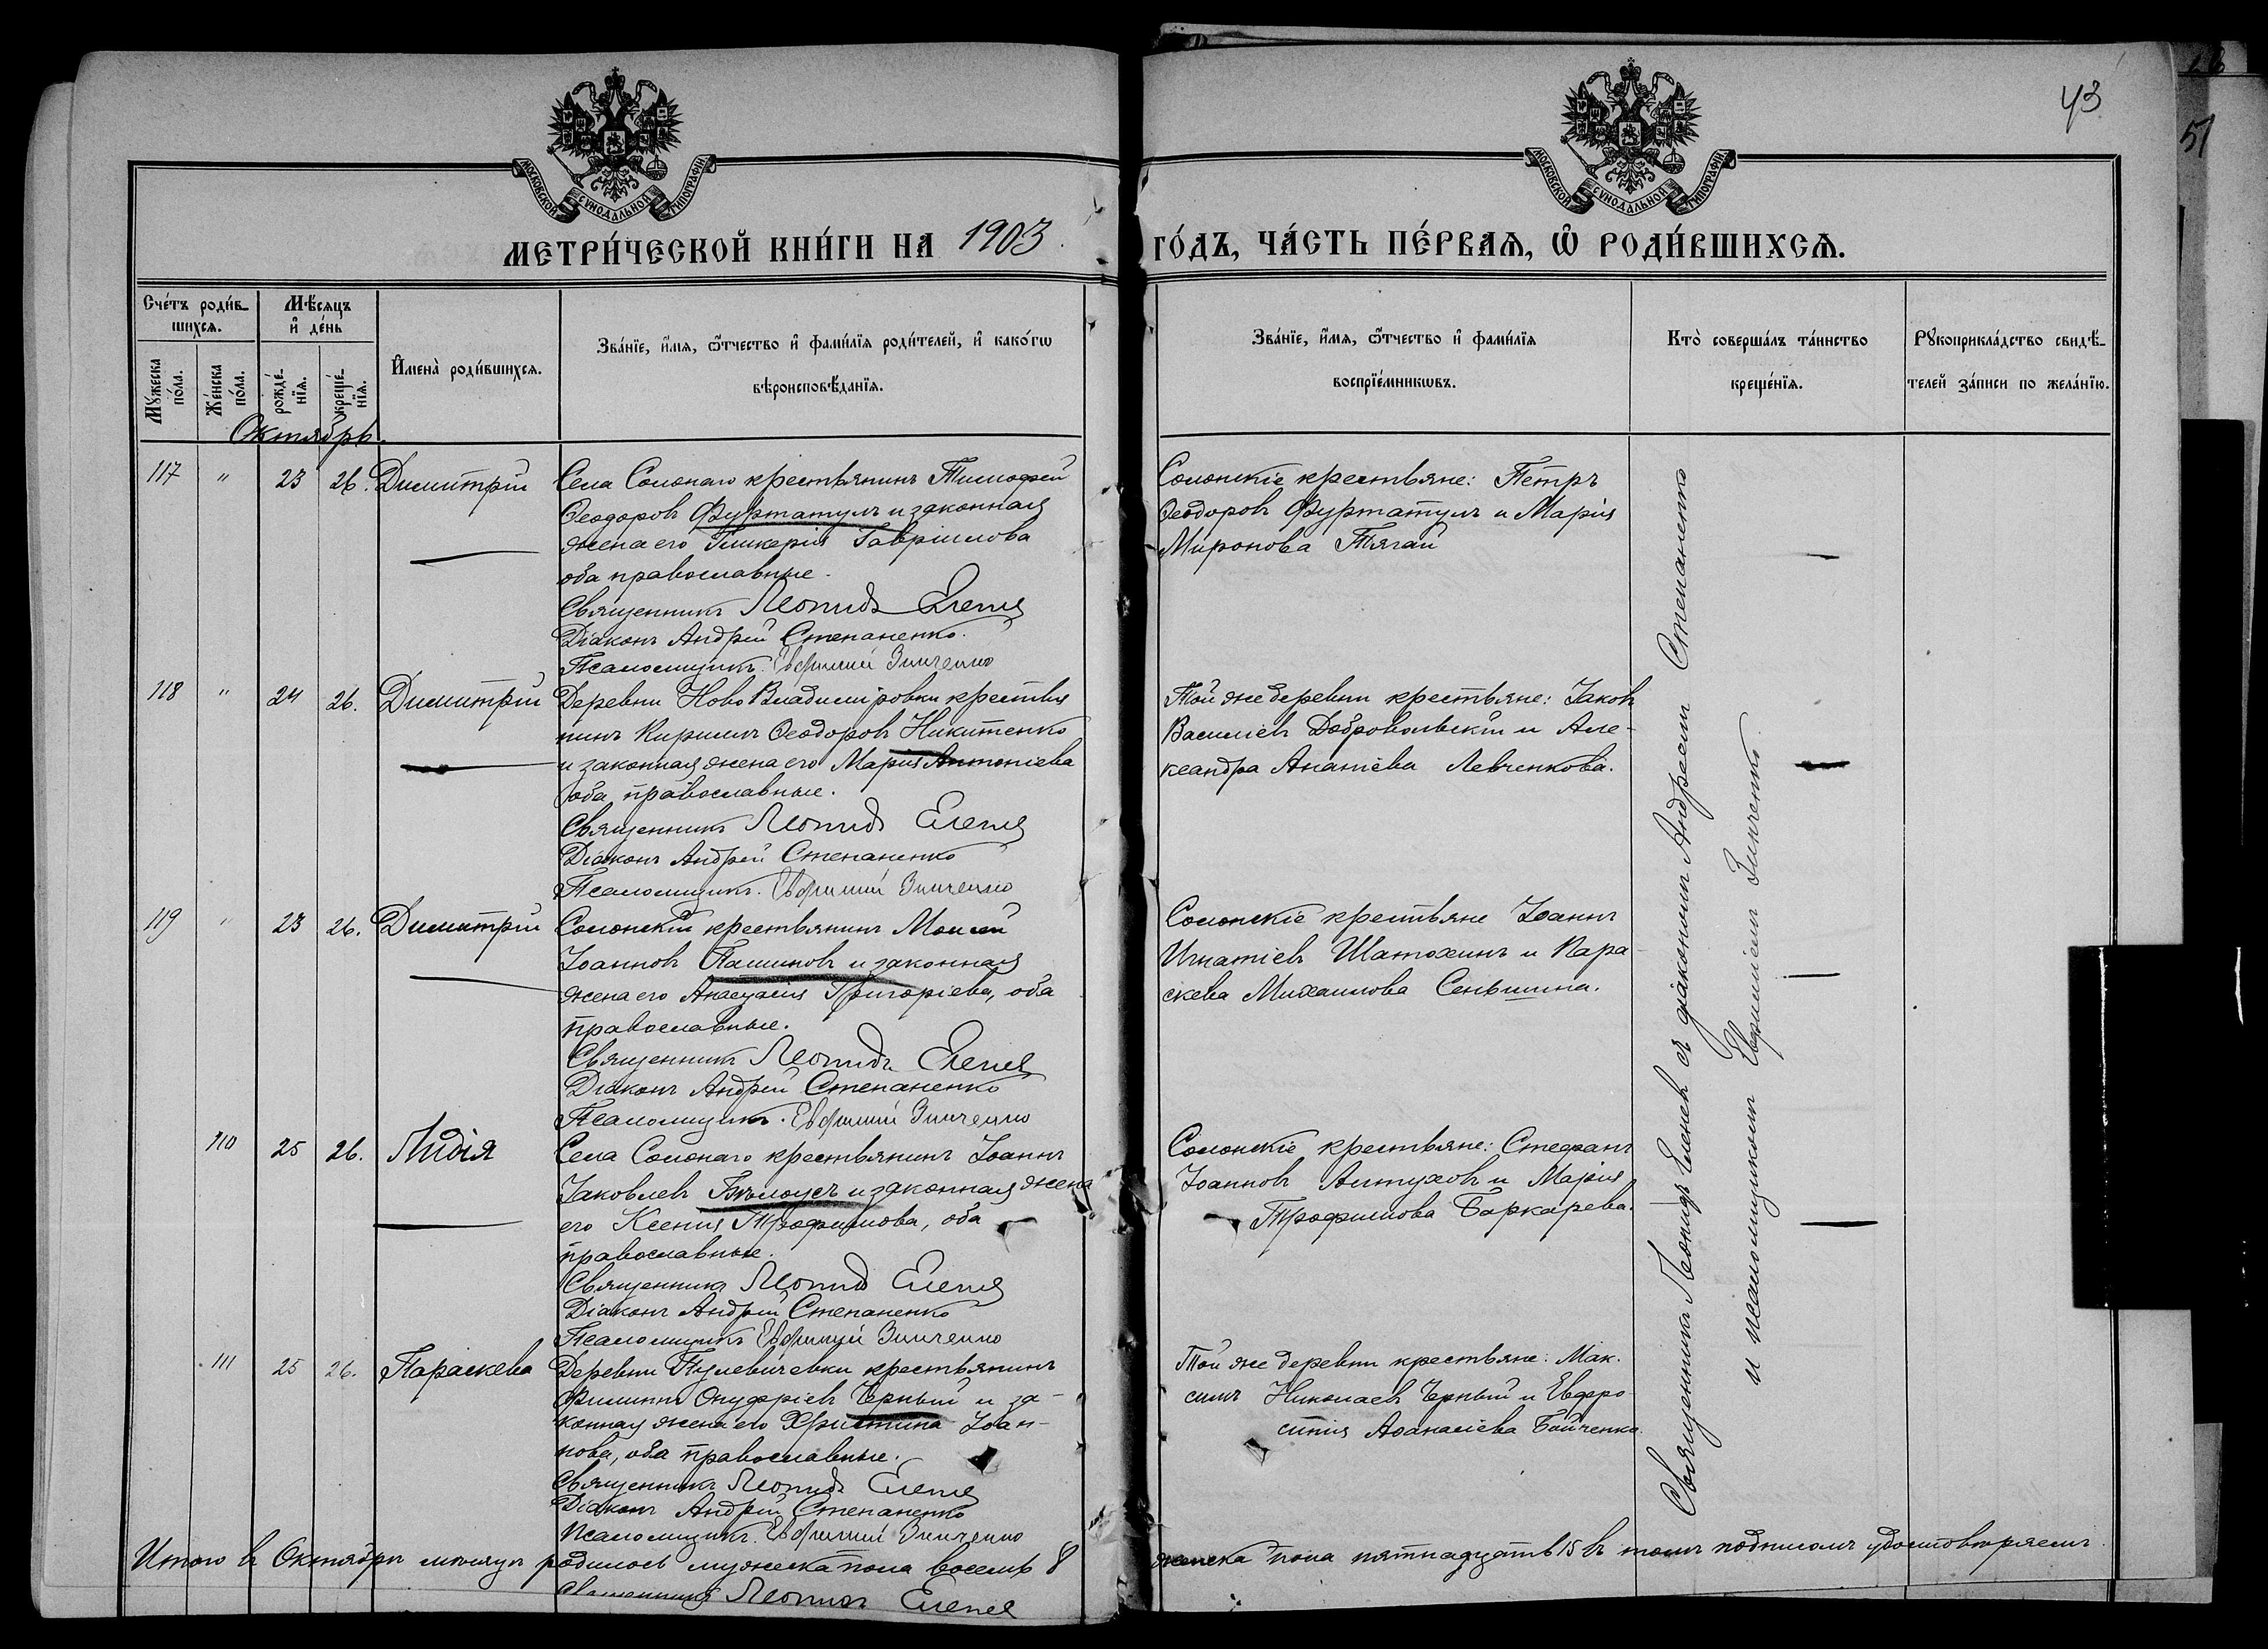 МОСКОВСКОЙ СѴНОДАЛЬНОЙ ТИПОГРАФІИ
МОСКОВСКОЙ СѴНОДАЛЬНОЙ ТИПОГРАФІИ
43
51
МЕТРИ́ЧЕСКОЙ КНИ́ГИ НА 1903 ГО́ДЪ, ЧА́СТЬ ПЕ́РВАѦ, Ѿ РОДИ́ВШИХСѦ.
Сче́тъ роди́в-
шихсѧ.
Мꙋ́жеска по́ла.
Же́нска по́ла.
Мѣ́сѧцъ
и҆ де́нь
рожде́-
нїѧ.
креще́-
нїѧ.
И҆мена̀ роди́вшихсѧ.
Зва́нїе, и҆́мѧ, ѻ҆́тчество и҆ фами́лїѧ роди́телей, и҆ како́гѡ
вѣроисповѣ́данїѧ.
Зва́нїе, и҆́мѧ, ѻ҆́тчество и҆ фами́лїѧ
воспрїе́мникѡвъ.
Кто̀ соверша́лъ та́инство
креще́нїѧ.
Рꙋкоприкла́дство свидѣ́-
телей за́писи по жела́нїю.
Октябрь.
117 " 23 26. Димитрій
Села Солонаго крестьянинъ Тимофей
Ѳеодоровъ Фуртатулъ и законная
жена его Гликерія Гавріилова
оба православные.
Священникъ Леонидъ Еленев
Діаконъ Андрей Степаненко.
Псаломщикъ Евфимій Зинченко
Солонскіе крестьяне: Петръ
Ѳеодоровъ Фуртатулъ и Марія
Миронова Тягай
118 " 24 26. Димитрій
Деревни Ново Владиміровки крестья
нинъ Кириллъ Ѳеодоровъ Никитенко
и законная жена его Марія Антоніева
оба православные.
Священникъ Леонидъ Еленев
Діаконъ Андрей Степаненко
Псаломщикъ Евфимій Зинченко
Той же деревни крестьяне: Іаковъ
Василіевъ Добровольскій и Але-
ксандра Ананіева Левченкова.
119 " 23 26. Димитрій
Солонскій крестьянинъ Моисей
Іоанновъ Пашиновъ и законная
жена его Анастасія Григоріева, оба
православные.
Священникъ Леонидъ Еленев
Діаконъ Андрей Степаненко
Псаломщикъ Евфимій Зинченко
Солонскіе крестьяне Іоаннъ
Игнатіевъ Шатохинъ и Пара-
скева Михаилова Сеньшина.
110 25 26. Лидія
Села Солонаго крестьянинъ Іоаннъ
Іаковлевъ Бѣлоусъ и законная жена
его Ксенія Трофимова, оба
православные.
Священникъ Леонидъ Еленев
Діаконъ Андрей Степаненко
Псаломщикъ Евфимій Зинченко
Солонскіе крестьяне: Стефанъ
Іоанновъ Алтуховъ и Марія
Трофимова Баркарева.
111 25 26. Параскева
Деревни Пулевичевки крестьянинъ
Филиппъ Онуфріевъ Черный и за-
конная жена его Христина Іоан-
нова, оба православные.
Священникъ Леонидъ Еленев
Діаконъ Андрей Степаненко
Псаломщикъ Евфимій Зинченко
Той же деревни крестьяне: Мак-
симъ Николаевъ Черный и Евфро-
синія Аѳанасіева Бойченко.
Священникъ Леонидъ Еленевъ съ діакономъ Андреемъ Степаненко
и псаломщикомъ Евфиміемъ Зинченко.
Итого въ Октябрѣ мѣсяцѣ родилось мужеска пола восемь 8 женска пола пятнадцать 15 въ томъ подписомъ удостовѣряемъ
Священникъ Леонидъ Еленев